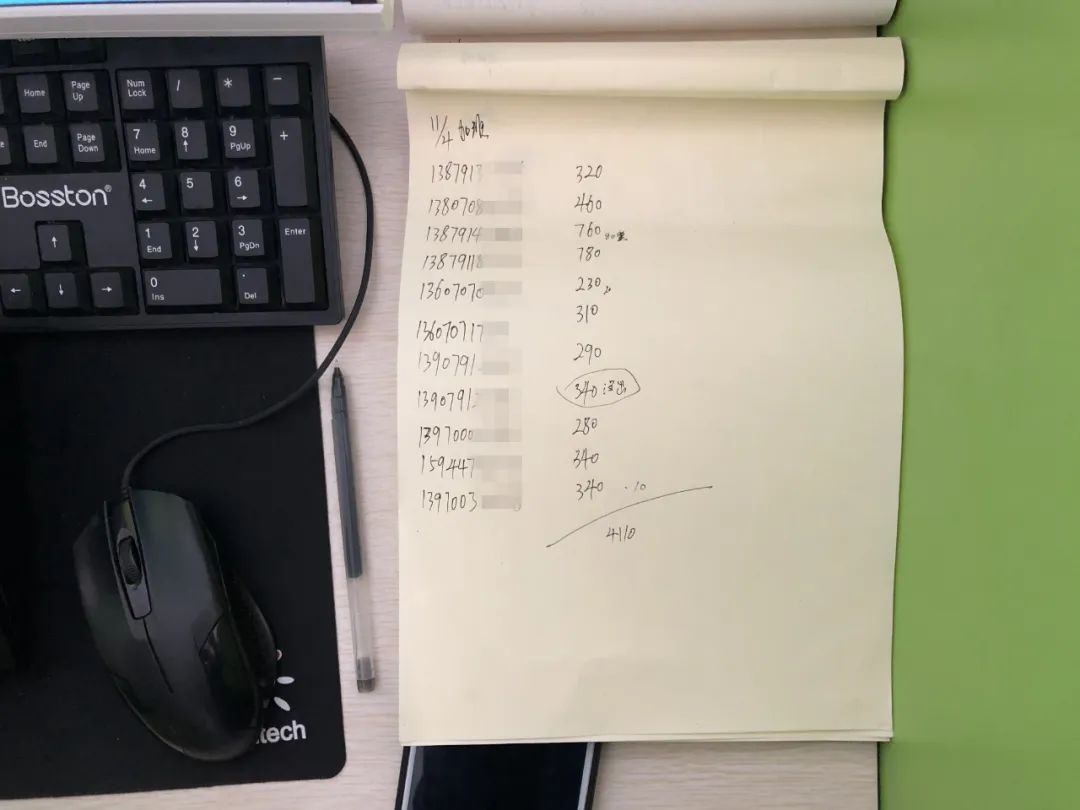 Home
Page Up
Num Lock
/
*
-
End
Page Down
7 Home
8 ↑
9 PgUp
+
Bosston®
4 ←
5
6 →
↑
1 End
2 ↓
3 PgDn
Enter
← ↓ →
0 Ins
. Del
tech
11/4
1387913 320
1380708 460
1387914 760
1387911 780
1360707 230
13607071 310
1390791 290
1390791 340 没出
1397000 280
159447 340
1397003 340 .10
4110